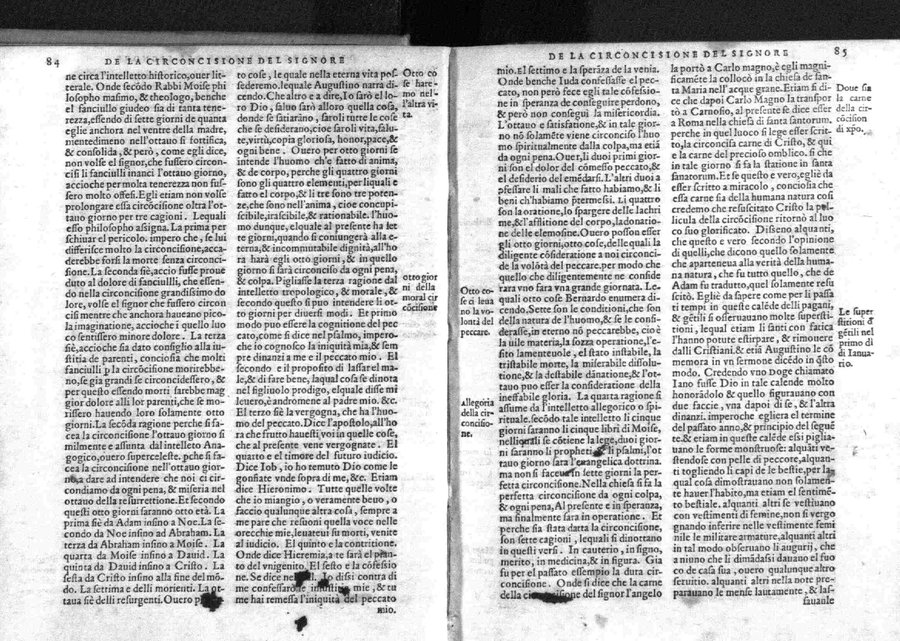 84
DE LA CIRCONCISIONE DEL SIGNORE
ne circa l'intelletto historico, ouer lit-
terale. Onde secõdo Rabbi Moise phi
losopho maſimo, & theologo, benche
el fanciullo giudeo sia di tanta tene-
rezza, essendo di sette giorni de quanta
eglie anchora nel ventre della madre,
nientedimeno nell'ottauo si fortifica,
& consolida, & però, come egli dice,
non volse el signor, che fussero circon-
cisi li fanciulli inanci l'ottauo giorno,
accioche per molta tenerezza non fus-
sero molto offesi. Egli etiam non volse
prolongare essa circoncisione oltra l'ot-
tauo giorno per tre cagioni. Lequali
esso philosopho assigna. La prima per
schiuar el pericolo. impero che, se lui
differisce molto la circoncisione, acca-
derebbe forsi la morte senza circonci-
sione. La seconda siè, accio fusse proue
duto al dolore di fanciullli, che essen-
do nella circoncisione grandissimo do
lore, volse el signor che fussero circon
cisi mentre che anchora haueano pico-
la imaginatione, accioche ĩ quello luo
co sentissero minore dolore. La terza
siè, accioche sia dato consiglio alla in-
stitia de parenti, conciosia che molti
fanciulli ꝑ la circõcisione morirebbe-
no, se gia grandi se circoncidessero, &
per questo essendo morti sarebbe mag
gior dolore alli lor parenti, che se mo-
rissero hauendo loro solamente otto
giorni. La secõda ragione perche si fa-
cea la circoncisione l'ottauo giorno si
milmente e assunta dal intelletto Ana-
gogico, ouero superceleste. ꝑche si fa-
cea la circoncisione nell'ottauo gior-
no a dare ad intendere che noi ci cir-
condiamo da ogni pena, & miseria nel
ottauo della resurrettione. Et secondo
questi otto giorni saranno otto età. La
prima siè da Adam insino a Noe. La se-
conda da Noe insino ad Abraham. La
terza da Abraham insino a Moise. La
quarta da Moise insino a Dauid. La
quinta da Dauid insino a Cristo. La
sesta da Cristo insino alla fine del mõ-
do. La settima e delli morienti. La ot-
taua siè delli resurgenti. Ouero per
to cose, le quale nella eterna vita pos
sederemo. lequale Augustino narra di-
cendo. Che altro e a dire, Io sarò el lo-
ro Dio, saluo sarò alloro quella cosa,
donde se satiarãno, saroli tutte le cose
che se desiderano, cioe saroli vita, salu-
te, virtù, copia gloriosa, honor, pace, &
ogni bene. Ouero per otto giorni se
intende l'huomo ch'e fatto di anima,
& de corpo, perche gli quattro giorni
sono gli quattro elementi, per liquali e
fatto el corpo, & li tre sono tre poten-
ze, che sono nell'anima, cioe concupi-
scibile, irascibile, & rationabile. l'huo-
mo dunque, elquale al presente ha set
te giorni, quando si coniungerà alla e-
terna, & incommutabile dignità, all'ho
ra harà egli otto giorni, & in quello
giorno si farà circonciso da ogni pena,
& colpa. Pigliasse la terza ragione dal
intelletto tropologico, & morale, &
secondo questo si puo intendere li ot-
to giorni per diuersi modi. Et primo
modo puo essere la cognition del pec
cato, come si dice nel psalmo, impero-
che io cognosco la iniquità mia, & sem
pre dinanzi a me e il peccato mio. El
secondo e il proposito di lassar el ma-
le, & di fare bene, laqual cosa se dinota
nel figliuolo prodigo, elquale disse mi
leuero, & andromene al padre mio. &c.
El terzo siè la vergogna, che ha l'huo-
mo del peccato. Dice l'apostolo, all'ho
ra che frutto hauesti voi in quelle cose,
che al presente vene vergognate. El
quarto e el timore del futuro iudicio.
Dice Iob, io ho temuto Dio come le
gonfiate vnde sopra di me, &c. Etiam
dice Hieronimo. Tutte quelle volte
che io miangio, o veramente beuo, o
faccio qualunque altra cosa, sempre a
me pare che resuoni quella voce nelle
orecchie mie, leuateui su morti, venite
al iudicio. El quinto e la contritione.
Onde dice Hieremia, a te farà el pian-
to del vnigenito. El sesto e la cõfessio-
ne. Se dice nel Io dissi contra di
me confessarò le iniustitie mie, & tu
me hai remessa l'iniquità del peccato
mio.
Otto co
se hare-
mo nel-
l'altra vi-
ta.
otto gior
ni della
moral cir
cõcisione
85
DE LA CIRCONCISIONE DEL SIGNORE
mio. El settimo e la sperãza de la venia.
Onde benche Iuda confessasse el pec-
cato, non però fece egli tale cõfessio-
ne in speranza de conseguire perdono,
& però non conseguì la misericordia.
L'ottauo e satisfatione, & in tale gior-
no nõ solamẽte viene circonciso l'huo
mo spiritualmente dalla colpa, ma etiã
da ogni pena. Ouer, li duoi primi gior-
ni son el dolor del cõmesso peccato, &
el desiderio del emẽdarsi. L'altri duoi a
ꝓfessare li mali che fatto habiamo, & li
beni ch'habiamo ꝑtermessi. Li quattro
son la oratione, lo spargere delle lachri
me, & l'afflitione del corpo, la donatio-
ne delle elemosine. Ouero posson esser
gli otto giorni, otto cose, delle quali la
diligente cõsideratione a noi circonci-
de la volõtà del peccare. per modo che
quello che diligentemente ne conside
rara vno fara vna grande giornata. Le-
quali otto cose Bernardo enumera di-
cendo, Sette son le conditioni, che son
della natura de l'huomo, & se le consi-
derasse, in eterno nõ peccarebbe, cioè
la uile materia, la sozza operatione, l'e-
sito lamenteuole, el stato instabile, la
tristabile morte, la miserabile dissolu-
tione, & la destabile dãnatione, & l'ot-
tauo puo esser la consideratione della
ineffabile gloria. La quarta ragione si
assume da l'intelletto allegorico o spi-
rituale. secõdo tale intelletto li cinque
giorni saranno li cinque libri di Moise,
nelliquali se cõtiene la lege, duoi gior-
ni saranno li propheti & li psalmi, l'ot
tauo giorno sara l'euangelica dottrina.
ma non si faceua in sette giorni la per-
fetta circoncisione. Nella chiesa si fa la
perfetta circoncisione da ogni colpa,
& ogni pena, Al presente e in speranza,
ma finalmente sara in operatione. Et
perche sia stata datta la circoncisione,
son sette cagioni, lequali si dinottano
in questi versi. In cauterio, in signo,
merito, in medicina, & in figura. Gia
fu per el passato essempio la dura cir-
concisione. Onde si dice che la carne
della circoncisione del signor l'angelo
la portò a Carlo magno, è egli magni-
ficamẽte la collocò in la chiesa de san-
ta Maria nell'acque grane. Etiam si di-
ce che dapoi Carlo Magno la transpor
tò a Carnosio, al presente se dice esser
a Roma nella chiesa di santa santorum.
perche in quel luoco si lege esser scrit-
to, la circoncisa carne di Cristo, & qui
e la carne del precioso omblico. si che
in tale giorno si fa la statione in santa
santorum. Et se questo e vero, egliè da
esser scritto a miracolo, conciosia che
essa carne sia della humana natura così
credemo che resuscitato Cristo la pel-
licula della circoncisione ritornò al luo
co suo glorificato. Disseno alquanti,
che questo e vero secondo l'opinione
di quelli, che dicono quello solamente
che aparteneua alla verità della huma-
na natura, che fu tutto quello, che de
Adam fu tradutto, quel solamente resu
scitò. Egliè da sapere come per li passa
ti tempi in queste calẽde delli pagani,
& gẽtili si osseruauano molte supersti-
tioni, lequal etiam li santi con fatica
l'hanno potute estirpare, & rimouere
dalli Cristiani. & etiã Augustino le cõ
memora in vn sermone dicẽdo in q̃sto
modo. Credendo vno Doge chiamato
Iano fusse Dio in tale calende molto
honorãdolo & quello figurauano con
due faccie, vna dapoi di se, & l'altra
dinanzi. imperoche egli era el termine
del passato anno, & principio del seguẽ
te. & etiam in queste calẽde essi piglia-
uano le forme monstruose: alquãti ve-
stendose con pelle di peccore, alquan-
ti togliendo li capi de le bestie, per la
qual cosa dimostrauano non solamen-
te hauer l'habito, ma etiam el sentimẽ-
to bestiale. alquanti altri se vestiuano
con vestimenti di femine, non si vergo
gnando inferire nelle vestimente femi
nile le militare armature, alquanti altri
in tal modo obseruano li augurij, che
a niuno che li dimãdasi dauano el fuo
co de casa sua, ouero qualunque altro
seruitio. alquanti altri nella notte pre-
parauano le mense lautamente, & las-
sauale
Otto co-
se ci leua
no la vo-
lontà del
peccare.
Allegoria
della cir-
concisio-
ne.
Doue sia
la carne
della cir-
cõcision
di xp̃o.
Le super
stitioni đ
gẽtili nel
primo dì
di Ianua-
rio.